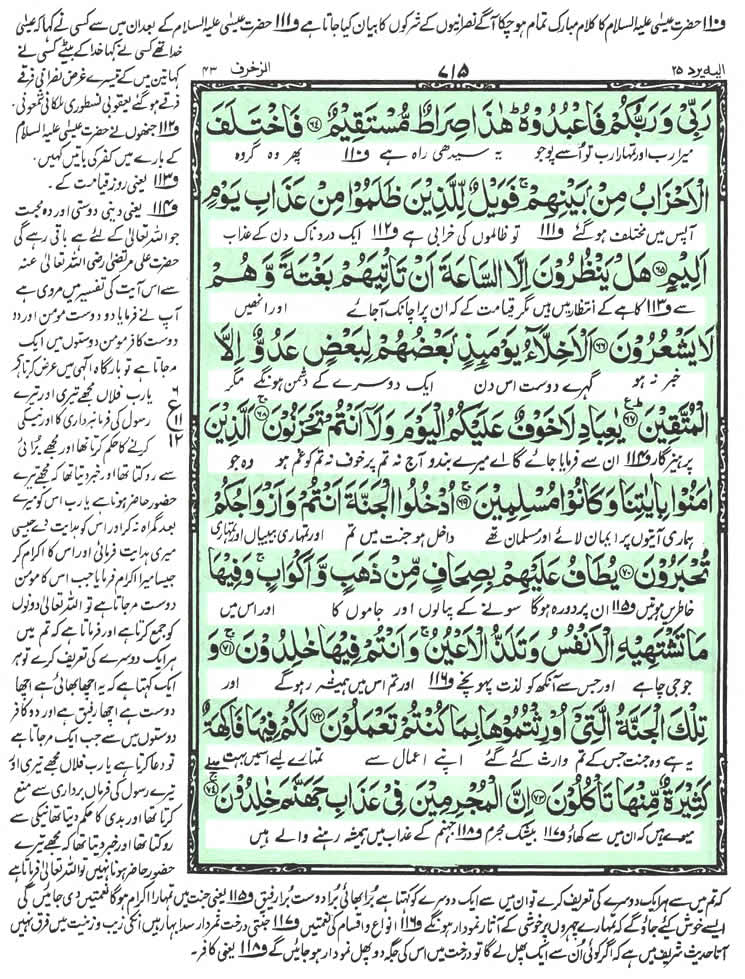 ف۱۱۰ حضرت عیسٰی علیہ السلام کا کلام مبارک تمام ہوچکا آگے نصرانیوں کے شرکوں کا بیان کیا جاتا ہے ف۱۱۱ حضرت عیسٰی علیہ السلام کے بعد ان میں سے کسی نے کہا کہ عیسٰی
خدا تھے کسی نے کہا خدا کے بیٹے کسی نے
کہا تین میں کے تیسرے غرض نصرانی فرقے
فرقے ہوگئے یعقوبی نسطوری ملکانی شمعونی۔
ف۱۱۲ جنھوں نے حضرت عیسٰی علیہ السلام
کے بارے میں کفر کی باتیں کہیں۔
ف۱۱۳ یعنی روز قیامت کے۔
ف۱۱۴ یعنی دینی دوستی اور وہ محبت
جو اللہ تعالیٰ کے لئے ہے باقی رہے گی
حضرت علی مرتضٰی رضی اللہ تعالیٰ عنہ
سے اس آیت کی تفسیر میں مروی ہے
آپ نے فرمایا دو دوست مومن اور دو
دوست کافر مومن دوستوں میں ایک
مرجاتا ہے تو بارگاہ الٰہی میں عرض کرتا ہے
یارب فلاں مجھے تیری اور تیرے
رسول کی فرمانبرداری کا اور نیکی
کرنے کا حکم کرتا تھا اور مجھے برائی
سے روکتا تھا اور خبر دیتا تھا کہ مجھے تیرے
حضور حاضر ہونا ہے یارب اس کو میرے
بعد گمراہ نہ کر اور اس کو ہدایت دے جیسی
میری ہدایت فرمائی اور اس کا اکرام کر
جیسا میرا اکرام فرمایا جب اس کا مومن
دوست مرجاتا ہے تو اللہ تعالیٰ دونوں
کو جمع کرتا ہے اور فرماتا ہے کہ تم میں
ہر ایک دوسرے کی تعریف کرے تو ہر
ایک کہتا ہے کہ یہ اچھا بھائی ہے اچھا
دوست ہے اچھا رفیق ہے اور دو کافر
دوستوں میں سے جب ایک مرجاتا ہے
تو دعا کرتا ہے یارب فلاں مجھے تیری اور
تیرے رسول کی فرماں برداری سے منع
کرتا تھا اور بدی کا حکم دیتا تھا نیکی سے
روکتا تھا اور خبر دیتا تھا کہ مجھے تیرے
حضور حاضر ہونا نہیں تو اللہ تعالیٰ فرماتا ہے
الیہ یرد ۲۵
۷۱۵
الزخرف ۴۳
رَبِّیْ وَرَبُّكُمْ فَاعْبُدُوْهُؕ هٰذَا صِرَاطٌ مُّسْتَقِیْمٌ ﴿۶۴﴾ فَاخْتَلَفَ
میرا رب اور تمہارا رب تو اُسے پوجو یہ سیدھی راہ ہے ف۱۱۰ پھر وہ گروہ
الْاَحْزَابُ مِنْۢ بَیْنِهِمْۚ فَوَیْلٌ لِّلَّذِیْنَ ظَلَمُوْا مِنْ عَذَابِ یَوْمٍ
آپس میں مختلف ہوگئے ف۱۱۱ تو ظالموں کی خرابی ہے ف۱۱۲ ایک دردناک دن کے عذاب
اَلِیْمٍ ﴿۶۵﴾ هَلْ یَنْظُرُوْنَ اِلَّا السَّاعَةَ اَنْ تَاْتِیَهُمْ بَغْتَةً وَّهُمْ
سے ف۱۱۳ کاہے کے انتظار میں ہیں مگر قیامت کے کہ ان پر اچانک آجائے اور انھیں
لَا یَشْعُرُوْنَ ﴿۶۶﴾ اَلْاَخِلَّآءُ یَوْمَىِٕذٍۭ بَعْضُهُمْ لِبَعْضٍ عَدُوٌّ اِلَّا
خبر نہ ہو گہرے دوست اس دن ایک دوسرے کے دشمن ہونگے مگر
الْمُتَّقِیْنَ ﴿۶۷﴾ یٰعِبَادِ لَا خَوْفٌ عَلَیْكُمُ الْیَوْمَ وَلَاۤ اَنْتُمْ تَحْزَنُوْنَ ﴿۶۸﴾ اَلَّذِیْنَ
پرہیزگار ف۱۱۴ ان سے فرمایا جائے گا اے میرے بندو آج نہ تم پر خوف نہ تم کو غم ہو وہ جو
اٰمَنُوْا بِاٰیٰتِنَا وَكَانُوْا مُسْلِمِیْنَ ﴿۶۹﴾ اُدْخُلُوا الْجَنَّةَ اَنْتُمْ وَاَزْوَاجُكُمْ
ہماری آیتوں پر ایمان لائے اور مسلمان تھے داخل ہو جنت میں تم اور تمہاری بیبیاں اور تمہاری
تُحْبَرُوْنَ ﴿۷۰﴾ یُطَافُ عَلَیْهِمْ بِصِحَافٍ مِّنْ ذَهَبٍ وَّاَكْوَابٍۚ وَفِیْهَا
خاطریں ہوتیں ف۱۱۵ ان پر دورہ ہوگا سونے کے پیالوں اور جاموں کا اور اس میں
مَا تَشْتَهِیْهِ الْاَنْفُسُ وَتَلَذُّ الْاَعْیُنُۚ وَاَنْتُمْ فِیْهَا خٰلِدُوْنَ ﴿۷۱﴾ وَ
جو جی چاہے اور جس سے آنکھ کو لذت پہونچے ف۱۱۶ اور تم اس میں ہمیشہ رہو گے اور
تِلْكَ الْجَنَّةُ الَّتِیْۤ اُوْرِثْتُمُوْهَا بِمَا كُنْتُمْ تَعْمَلُوْنَ ﴿۷۲﴾ لَكُمْ فِیْهَا فَاكِهَةٌ
یہ ہے وہ جنت جس کے تم وارث کئے گئے اپنے اعمال سے تمہارے لیے اسمیں بہت
كَثِیْرَةٌ مِّنْهَا تَاْكُلُوْنَ ﴿۷۳﴾ اِنَّ الْمُجْرِمِیْنَ فِیْ عَذَابِ جَهَنَّمَ خٰلِدُوْنَ ﴿۷۴﴾
میوے ہیں کہ ان میں سے کھاؤ ف۱۱۷ بیشک مجرم ف۱۱۸ جہنم کے عذاب میں ہمیشہ رہنے والے ہیں
ع
۶
۱۱
۱۲
کہ تم میں سے ہر ایک دوسرے کی تعریف کرے تو ان میں سے ایک دوسرے کو کہتا ہے برا بھائی برا دوست برا رفیق ف۱۱۵ یعنی جنت میں تمہارا اکرام ہوگا نعمتیں دی جائیں گی
ایسے خوش کئے جاؤ گے کہ تمہارے چہروں پر خوشی کے آثار نمودار ہونگے ف۱۱۶ انواع و اقسام کی نعمتیں ف۱۱۷ جنتی درخت ثمردار سدا بہار ہیں انکی زیب و زینت میں فرق نہیں
آتا حدیث شریف میں ہے کہ اگر کوئی اُن سے ایک پھل لے گا تو درخت میں اس کی جگہ دو پھل نمودار ہوجائیں گے ف۱۱۸ یعنی کافر۔